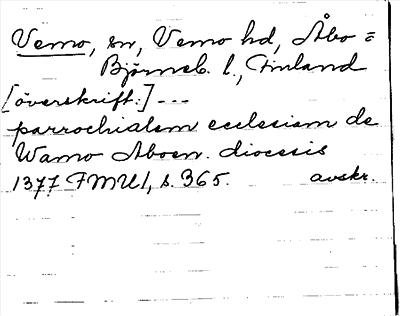 Vemo, sn, Vemo hd, Åbo =
Björneb. l., Finland
[överskrift:] ---
parrochialem ecclesiam de
Wamo Aboen. diocesis
1377 FMU 1, s. 365. avskr.